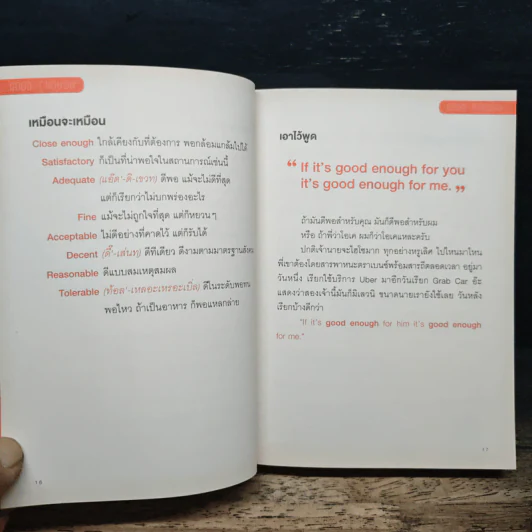 เหมือนจะเหมือน
Close enough ใกล้เคียงกับที่ต้องการ พอกล้อมแกล้มไปได้
Satisfactory ก็เป็นที่น่าพอใจในสถานการณ์เช่นนี้
Adequate (แอ๊ด'-ดิ-เขวท) ดีพอ แม้จะไม่ดีที่สุด
แต่ก็เรียกว่าไม่บกพร่องอะไร
Fine แม้จะไม่ถูกใจที่สุด แต่ก็หยวนๆ
Acceptable ไม่ดีอย่างที่คาดไว้ แต่ก็รับได้
Decent (ดี๊'-เส่นท) ดีทีเดียว ดีงามตามมาตรฐานสังคม
Reasonable ดีแบบสมเหตุสมผล
Tolerable ดีในระดับพอทน
พอไหว ถ้าเป็นอาหาร ก็พอแหลกล่าย
16
เอาไว้พูด
“ If it's good enough for you
it's good enough for me. ”
ถ้ามันดีพอสำหรับคุณ มันก็ดีพอสำหรับผม
หรือ ถ้าพี่ว่าโอเค ผมก็ว่าโอเคแหละครับ
ปกติเจ้านายจะไฮโซมาก ทุกอย่างหรูเลิศ ไปไหนมาไหน
พี่เขาต้องโดยสารพาหนะตราเบนซ์พร้อมสารถีตลอดเวลา อยู่มา
วันหนึ่ง เรียกใช้บริการ Uber มาอีกวันเรียก Grab Car อ๊ะ
แสดงว่าสองเจ้านี้มันก็มีเลวนิ ขนาดนายเรายังใช้เลย วันหลัง
เรียกบ้างดีกว่า
"If it's good enough for him it's good enough
for me."
17